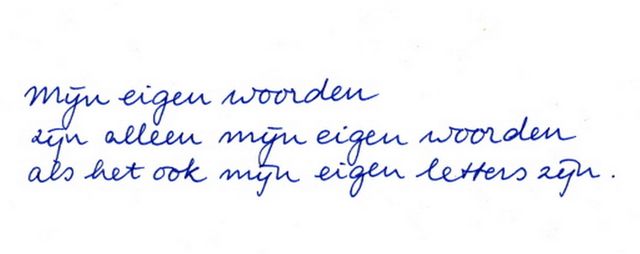 Mijn eigen woorden
zijn alleen mijn eigen woorden
als het ook mijn eigen letters zijn.